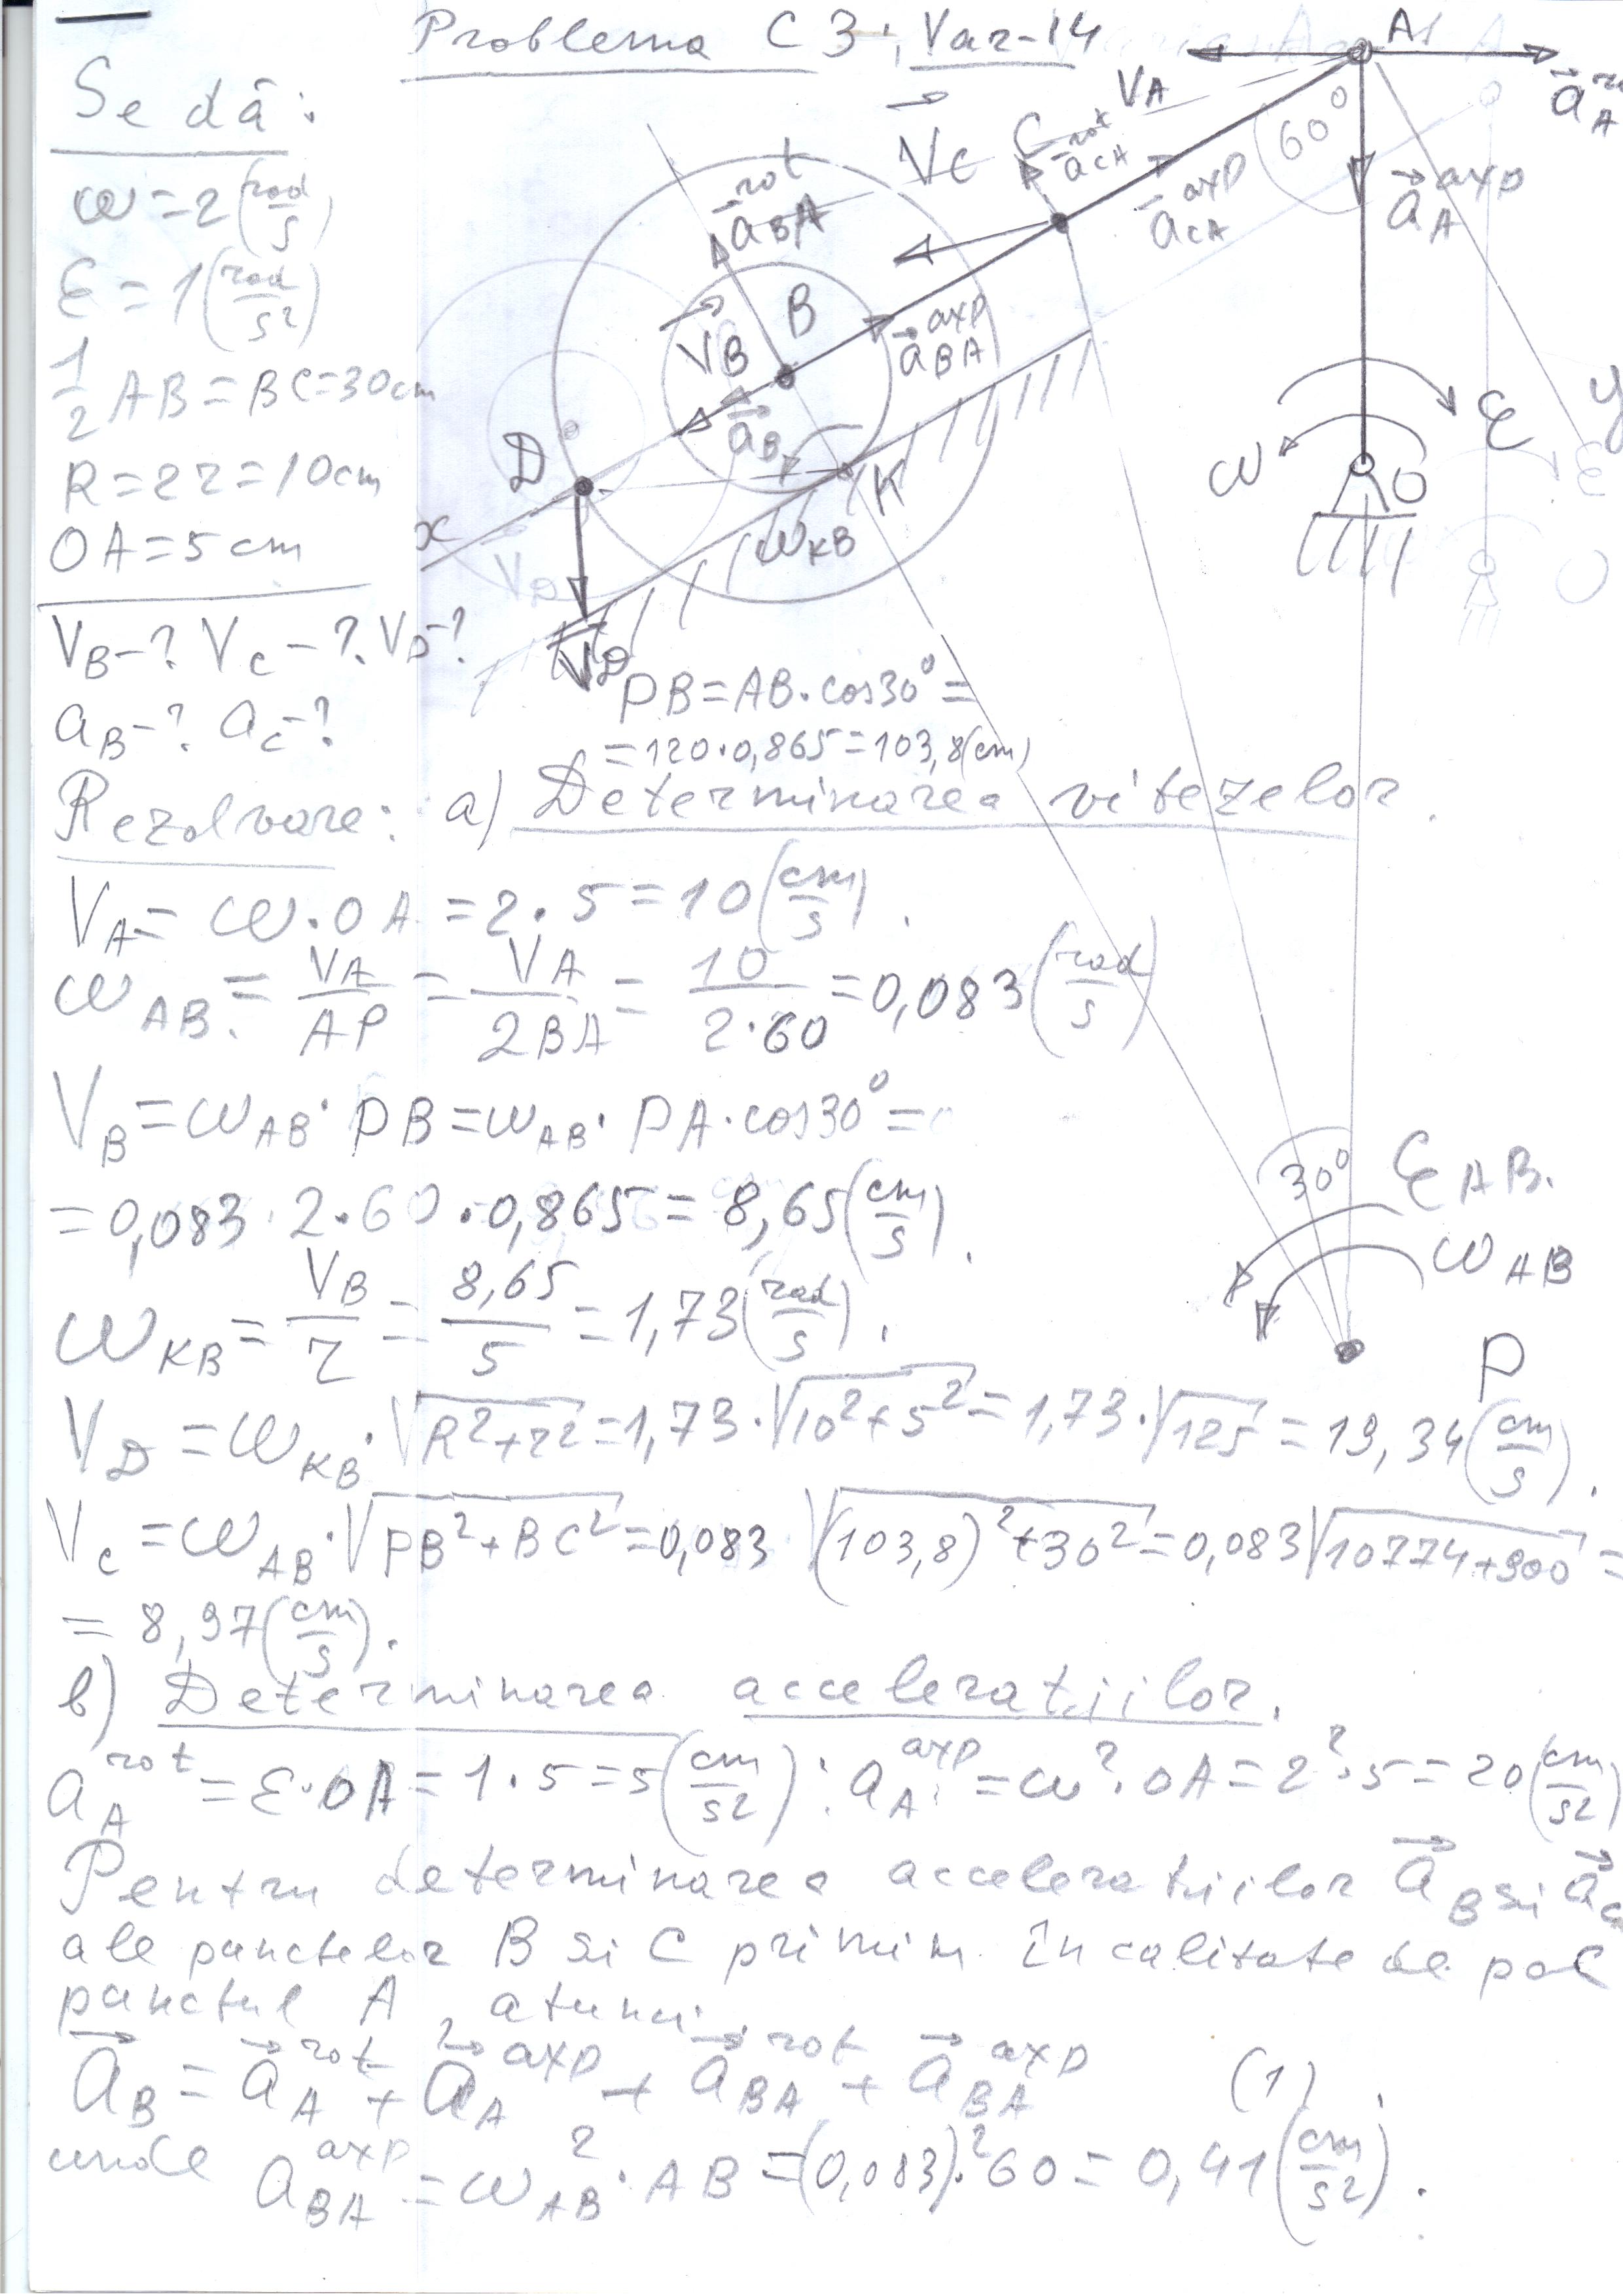 Problema C3; Var-14
Se dă:
ω=2(rad/s)
ε=1(rad/s²)
1/2 AB=BC=30cm
R=2r=10cm
OA=5cm
V_B-? V_C-? V_D-?
a_B-? a_C-?
A
V_A
a⃗_A^rot
60°
a⃗_A^axp
C
V_C
a⃗_CA^rot
a⃗_CA^axp
a⃗_BA^rot
B
V_B
a⃗_BA^axp
a⃗_B
D
K
x
y
ω_KB
V_D
ω
ε
O
30°
ε_AB.
ω_AB
P
PB=AB·cos30°=
=120·0,865=103,8(cm)
Rezolvare: a) Determinarea vitezelor.
V_A=ω·OA=2·5=10(cm/s).
ω_AB=V_A/AP=V_A/2BA=10/2·60=0,083(rad/s)
V_B=ω_AB·PB=ω_AB·PA·cos30°=
=0,083·2·60·0,865=8,65(cm/s).
ω_KB=V_B/r=8,65/5=1,73(rad/s).
V_D=ω_KB·√(R²+r²)=1,73·√(10²+5²)=1,73·√125=19,34(cm/s).
V_C=ω_AB·√(PB²+BC²)=0,083√((103,8)²+30²)=0,083√(10774+900)=
=8,97(cm/s).
b) Determinarea acceleratiilor.
a_A^rot=ε·OA=1·5=5(cm/s²); a_A^axp=ω²·OA=2²·5=20(cm/s²)
Pentru determinarea acceleratiilor a⃗_B si a⃗_C
ale punctelor B si C primim în calitate de pol
punctul A, atunci
a⃗_B=a⃗_A^rot+a⃗_A^axp+a⃗_BA^rot+a⃗_BA^axp (1)
unde a_BA^axp=ω²_AB·AB=(0,083)²·60=0,41(cm/s²).